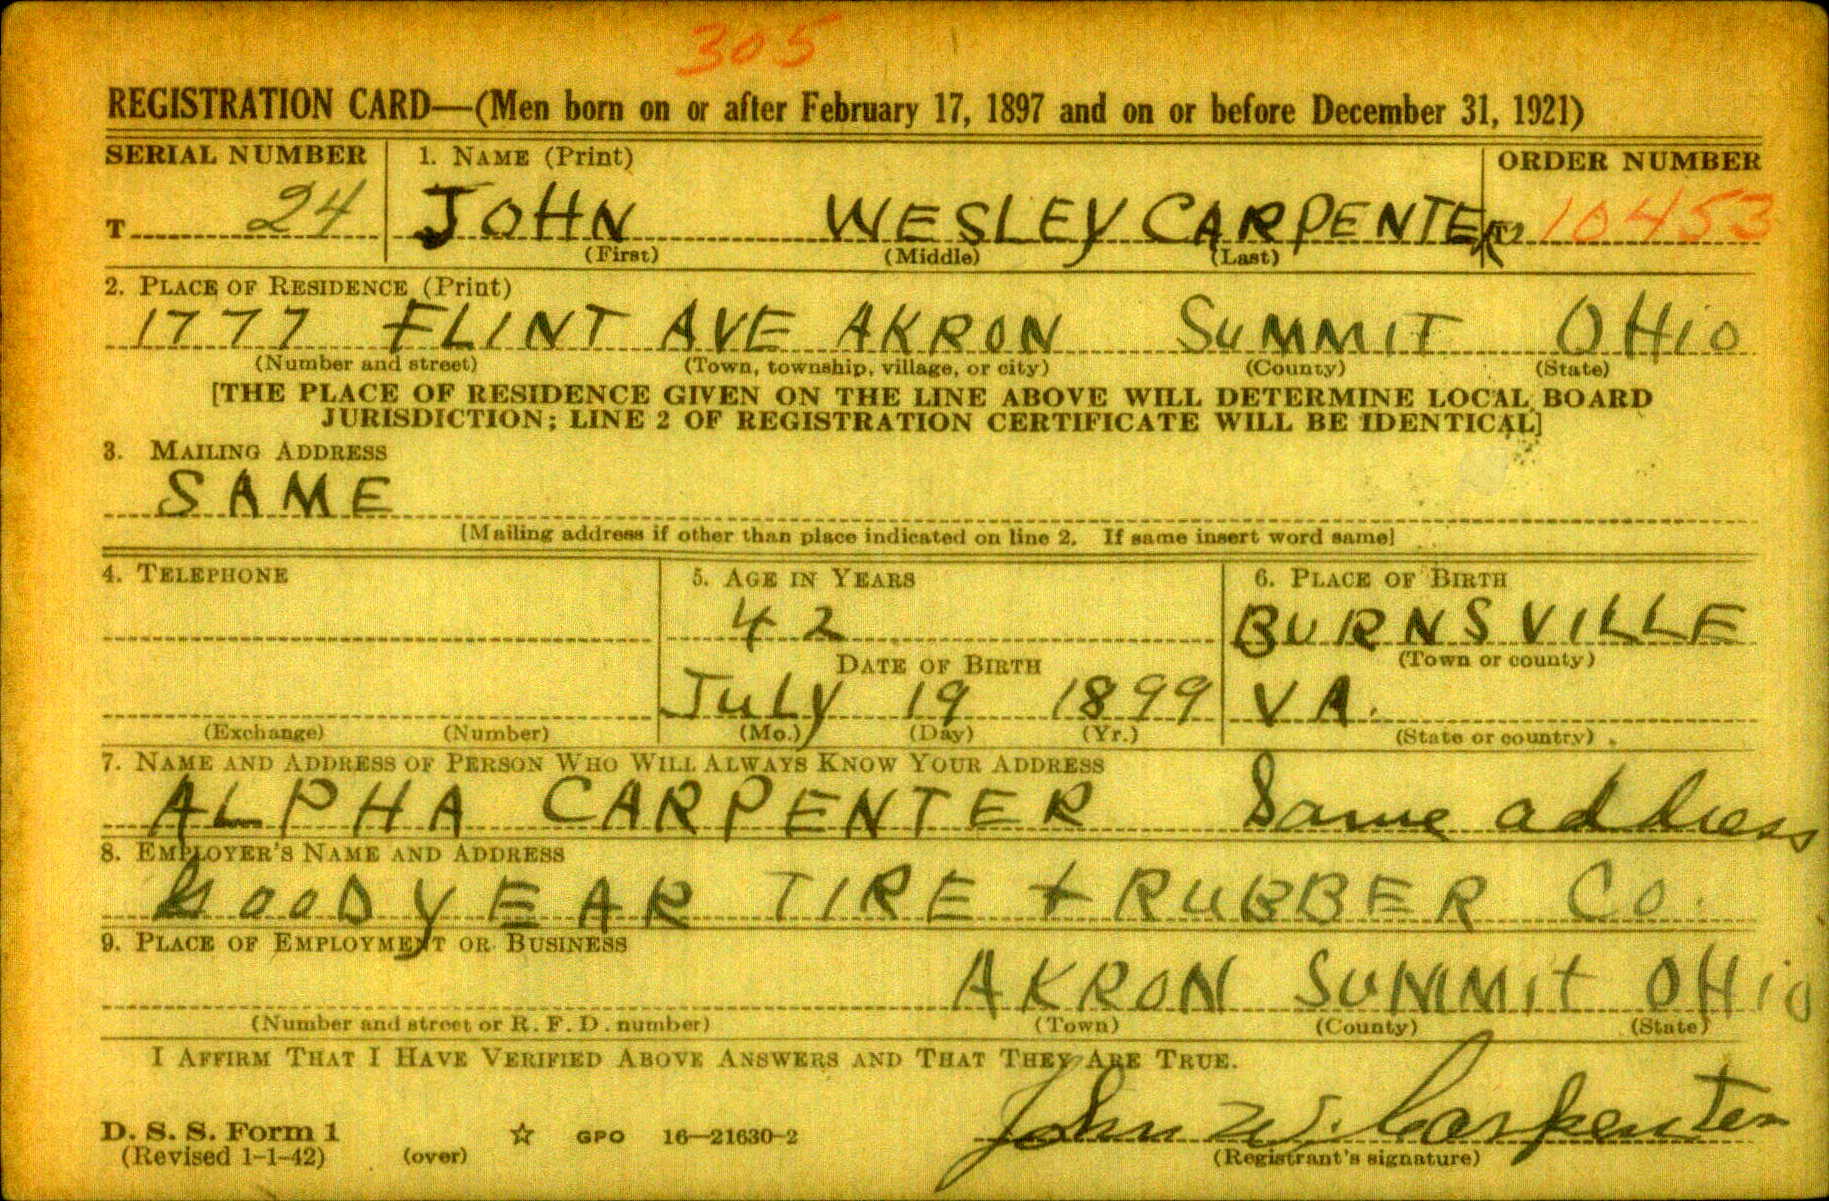 305
REGISTRATION CARD—(Men born on or after February 17, 1897 and on or before December 31, 1921)
SERIAL NUMBER 1. NAME (Print) ORDER NUMBER
T 24 JOHN WESLEY CARPENTER T 10453
(First) (Middle) (Last)
2. PLACE OF RESIDENCE (Print)
1777 FLINT AVE AKRON SUMMIT OHIO
(Number and street) (Town, township, village, or city) (County) (State)
[THE PLACE OF RESIDENCE GIVEN ON THE LINE ABOVE WILL DETERMINE LOCAL BOARD
JURISDICTION; LINE 2 OF REGISTRATION CERTIFICATE WILL BE IDENTICAL]
3. MAILING ADDRESS
SAME
[Mailing address if other than place indicated on line 2. If same insert word same]
4. TELEPHONE 5. AGE IN YEARS 6. PLACE OF BIRTH
42 BURNSVILLE
DATE OF BIRTH (Town or county)
JULY 19 1899 VA.
(Exchange) (Number) (Mo.) (Day) (Yr.) (State or country)
7. NAME AND ADDRESS OF PERSON WHO WILL ALWAYS KNOW YOUR ADDRESS
ALPHA CARPENTER Same address
8. EMPLOYER'S NAME AND ADDRESS
GOODYEAR TIRE + RUBBER CO.
9. PLACE OF EMPLOYMENT OR BUSINESS
AKRON SUMMIT OHIO
(Number and street or R. F. D. number) (Town) (County) (State)
I AFFIRM THAT I HAVE VERIFIED ABOVE ANSWERS AND THAT THEY ARE TRUE.
John W. Carpenter
D. S. S. Form 1 ☆ GPO 16—21630-2
(Revised 1-1-42) (over) (Registrant's signature)